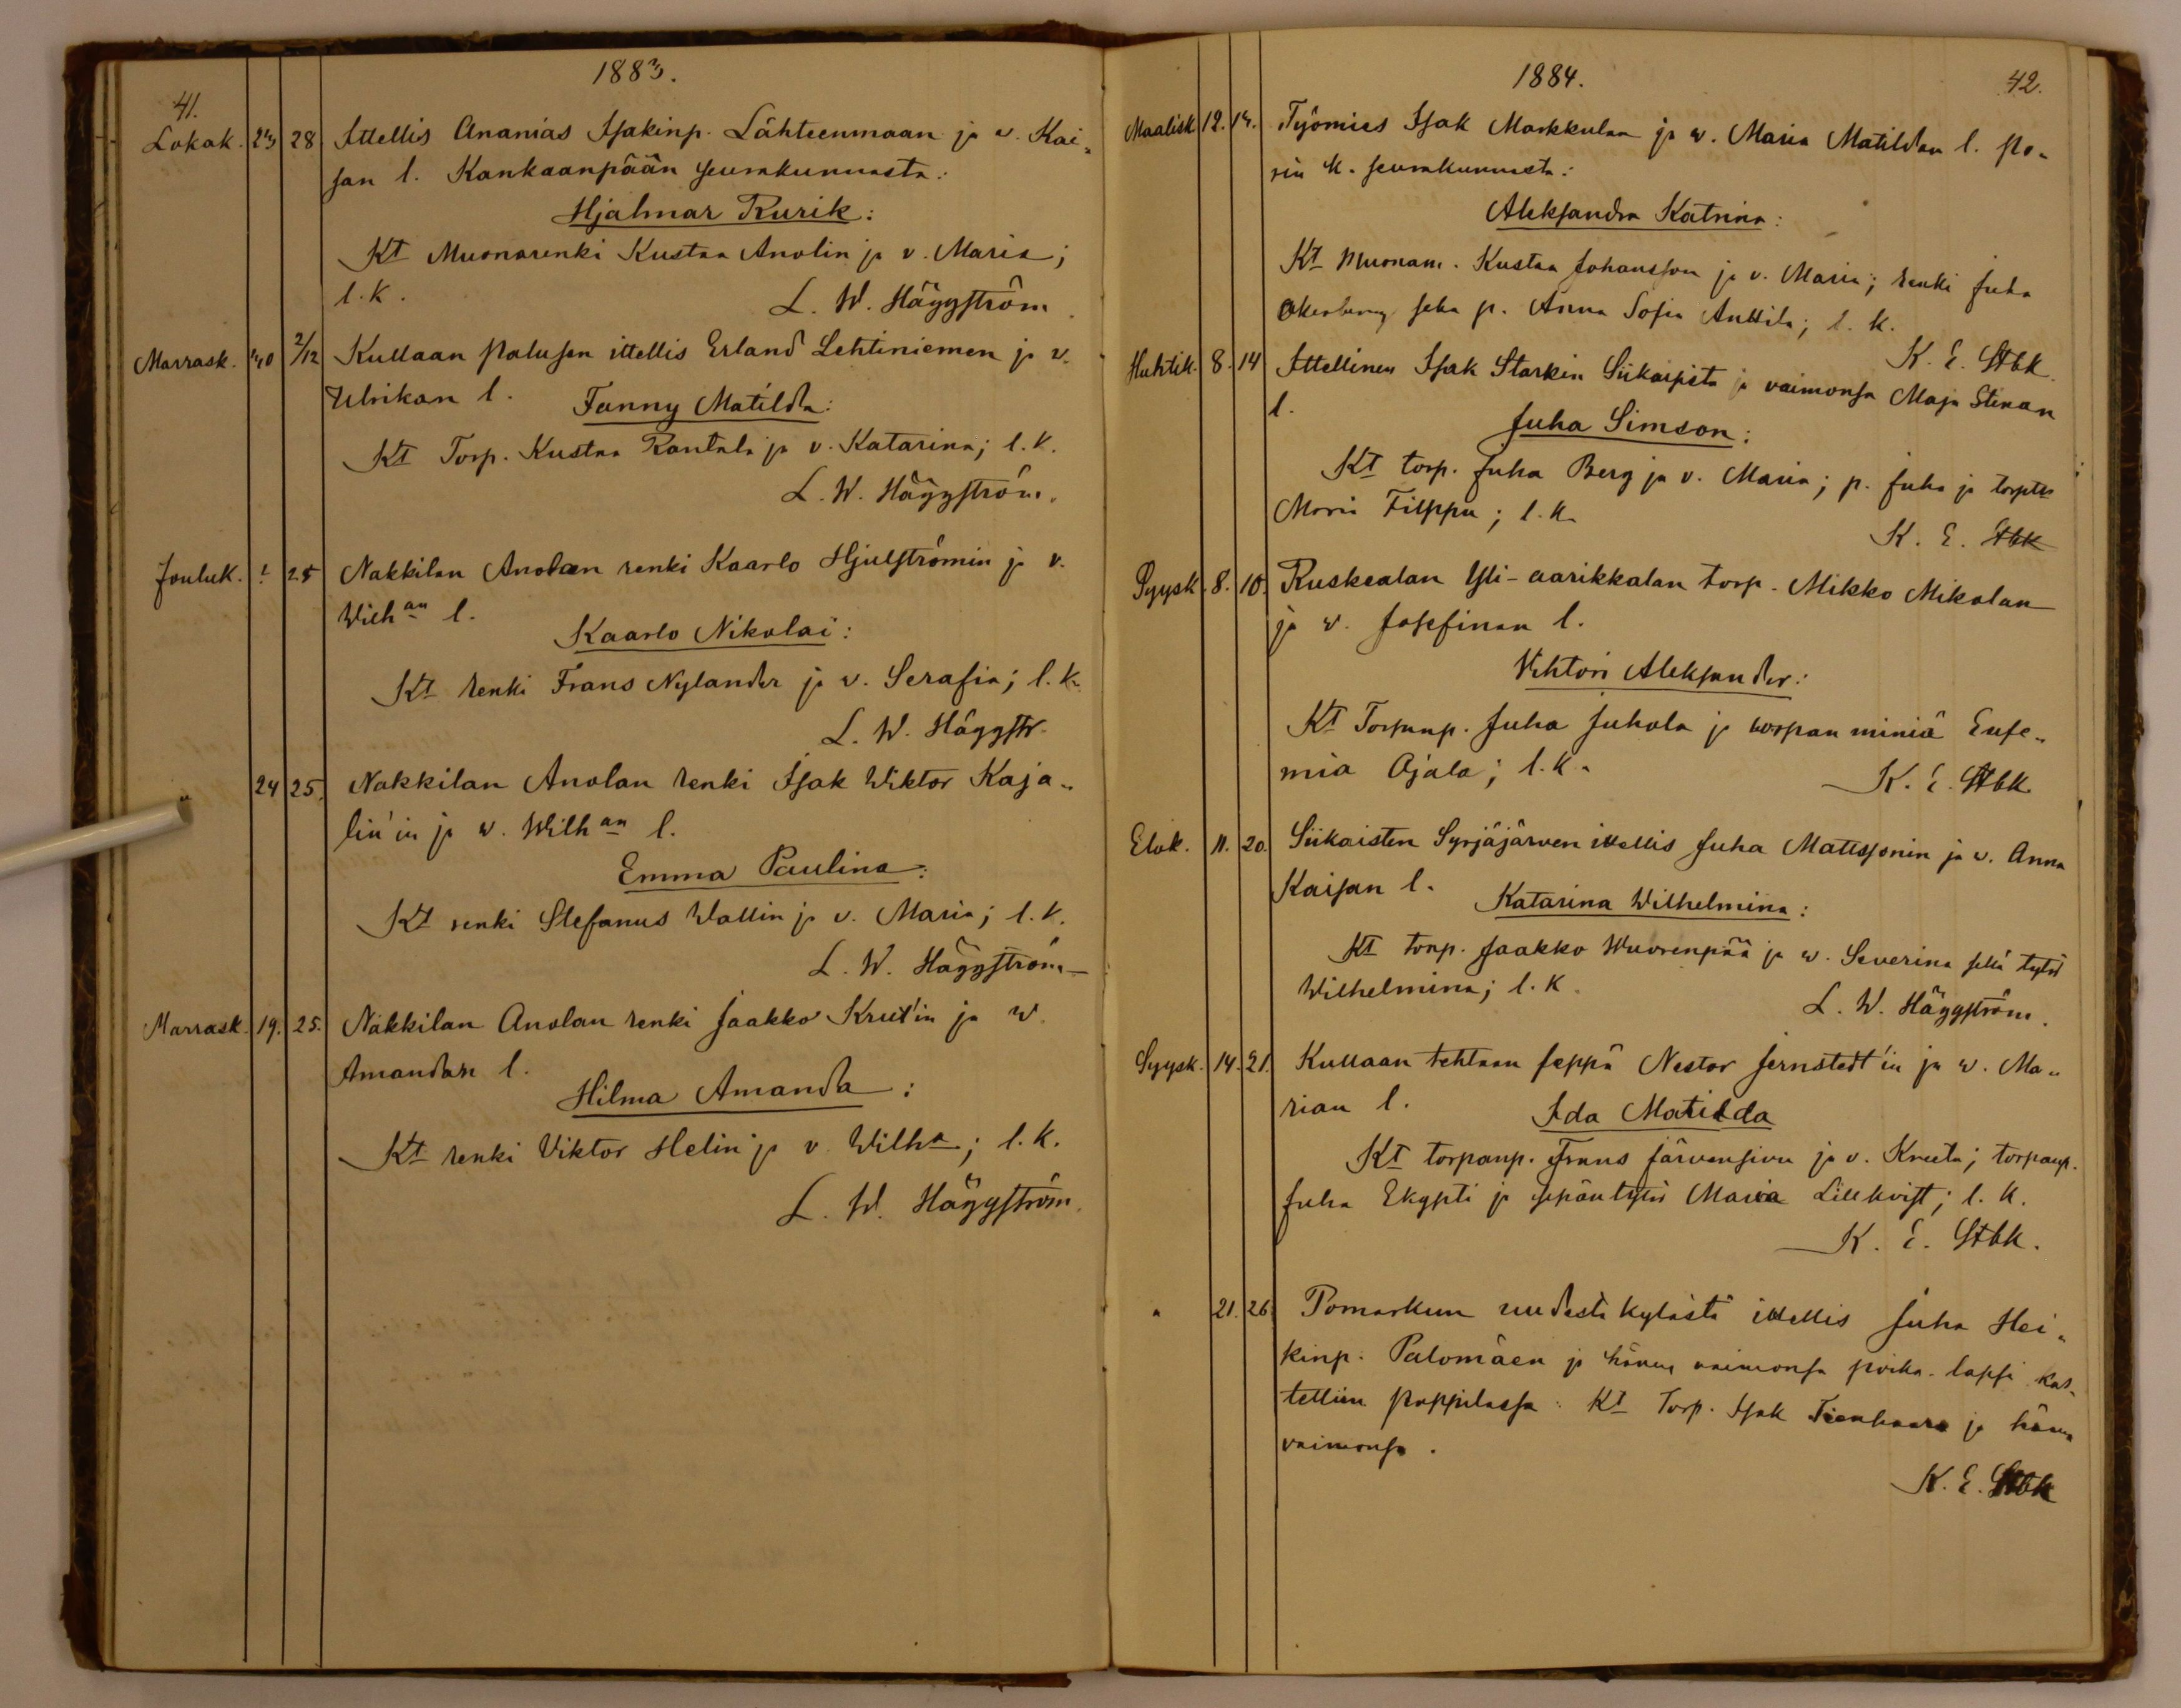 1883.
41.
Lokak. 23 28. Ittellis Ananias Isakinp. Lähteenmaan ja v. Kai„
san l. Kankaanpään seurakunnasta:
Hjalmar Rurik:
Kt Muonarenki Kustaa Anolin ja v. Maria;
l. k.
L. W. Häggström
Marrask. 30 2/12 Kullaan Palusen ittellis Erland Lehtiniemen ja v.
Ulrikan l. Fanny Matilda:
Kt Torp. Kustaa Rantala ja v. Katarina; l. k.
L. W. Häggström.
Jouluk. ? 25 Nakkilan Anolan renki Kaarlo Hjulströmin ja v.
Wilhan l.
Kaarlo Nikolai:
Kt renki Frans Nylander ja v. Serafia; l. k.
L. W. Häggstr.
„ 24 25. Nakkilan Anolan renki Isak Wiktor Kaja„
lin'in ja w. Wilhan l.
Emma Paulina:
Kt renki Stefanus Wallin ja v. Maria; l. k.
L. W. Häggström
Marrask. 19. 25. Nakkilan Anolan renki Jaakko Krut'in ja w.
Amandan l.
Hilma Amanda:
Kt renki Viktor Helin ja v. Wilha; l. k.
L. W. Häggström.
1884.
42.
Maalisk 12. 14. Työmies Isak Markkulan ja w. Maria Matildan l. Po„
rin k. seurakunnasta:
Aleksandra Katrina:
Kt Muonam. Kustaa Johansson ja v. Maria; renki Juha
Okerberg seka p. Anna Sofia Anttila; l. k.
K. E. Stbk.
Huhtik. 8. 14 Ittellinen Isak Starkin Siikaisista ja vaimonsa Maja Stinan
l.
Juha Simson:
Kt torp. Juha Berg ja v. Maria; p. Juha ja torptr
Maria Filppu; l. k.
K. E. Stbk
Syysk. 8. 10. Ruskealan Yli-aarikkalan torp. Mikko Mikolan
ja w. Josefinan l.
Vihtori Aleksander:
Kt Torpanp. Juha Juhola ja torpan miniä Eufe„
mia Ojala; l. k.
K. E. Stbk.
Elok. 11. 20. Siikaisten Syrjäjärven ittellis Juha Mattssonin ja v. Anna
Kaisan l.
Katarina Wilhelmina:
Kt torp. Jaakko Wuorenpää ja w. Severina sekä tytär
Wilhelmina; l. k.
L. W. Häggström.
Syysk. 14. 21. Kullaan tehtaan seppä Nestor Jernstedt'in ja w. Ma„
rian l.
Ida Matilda
Kt torpanp. Frans Järvensivu ja v. Kreeta; torpanp.
Juha Ekypti ja sepäntytär Maria Lillkvist; l. k.
K. E. Stbk.
„ 21. 26. Pomarkun uudesta kylästä ittellis Juha Hei„
kinp. Palomäen ja hänen vaimonsa poika-lapsi kas„
tettiin pappilassa: Kt Torp. Isak Tienhaara ja hänen
vaimonsa.
K. E. Stbk